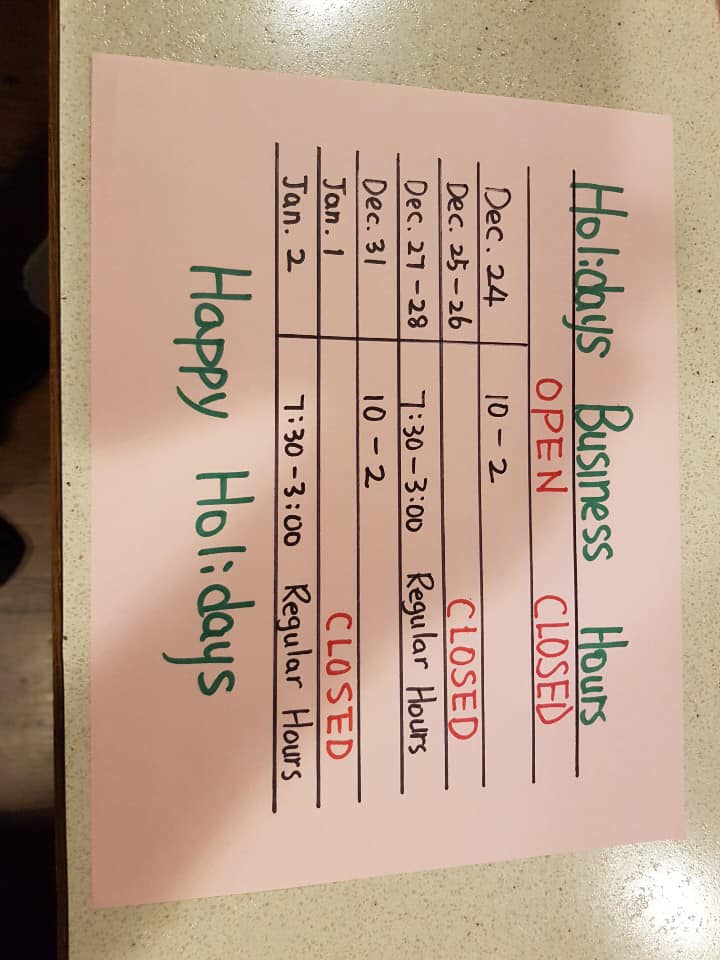 Holidays Business Hours
OPEN CLOSED
Dec. 24 10-2
Dec. 25-26 CLOSED
Dec. 27-28 7:30-3:00 Regular Hours
Dec. 31 10-2
Jan. 1 CLOSED
Jan. 2 7:30-3:00 Regular Hours
Happy Holidays